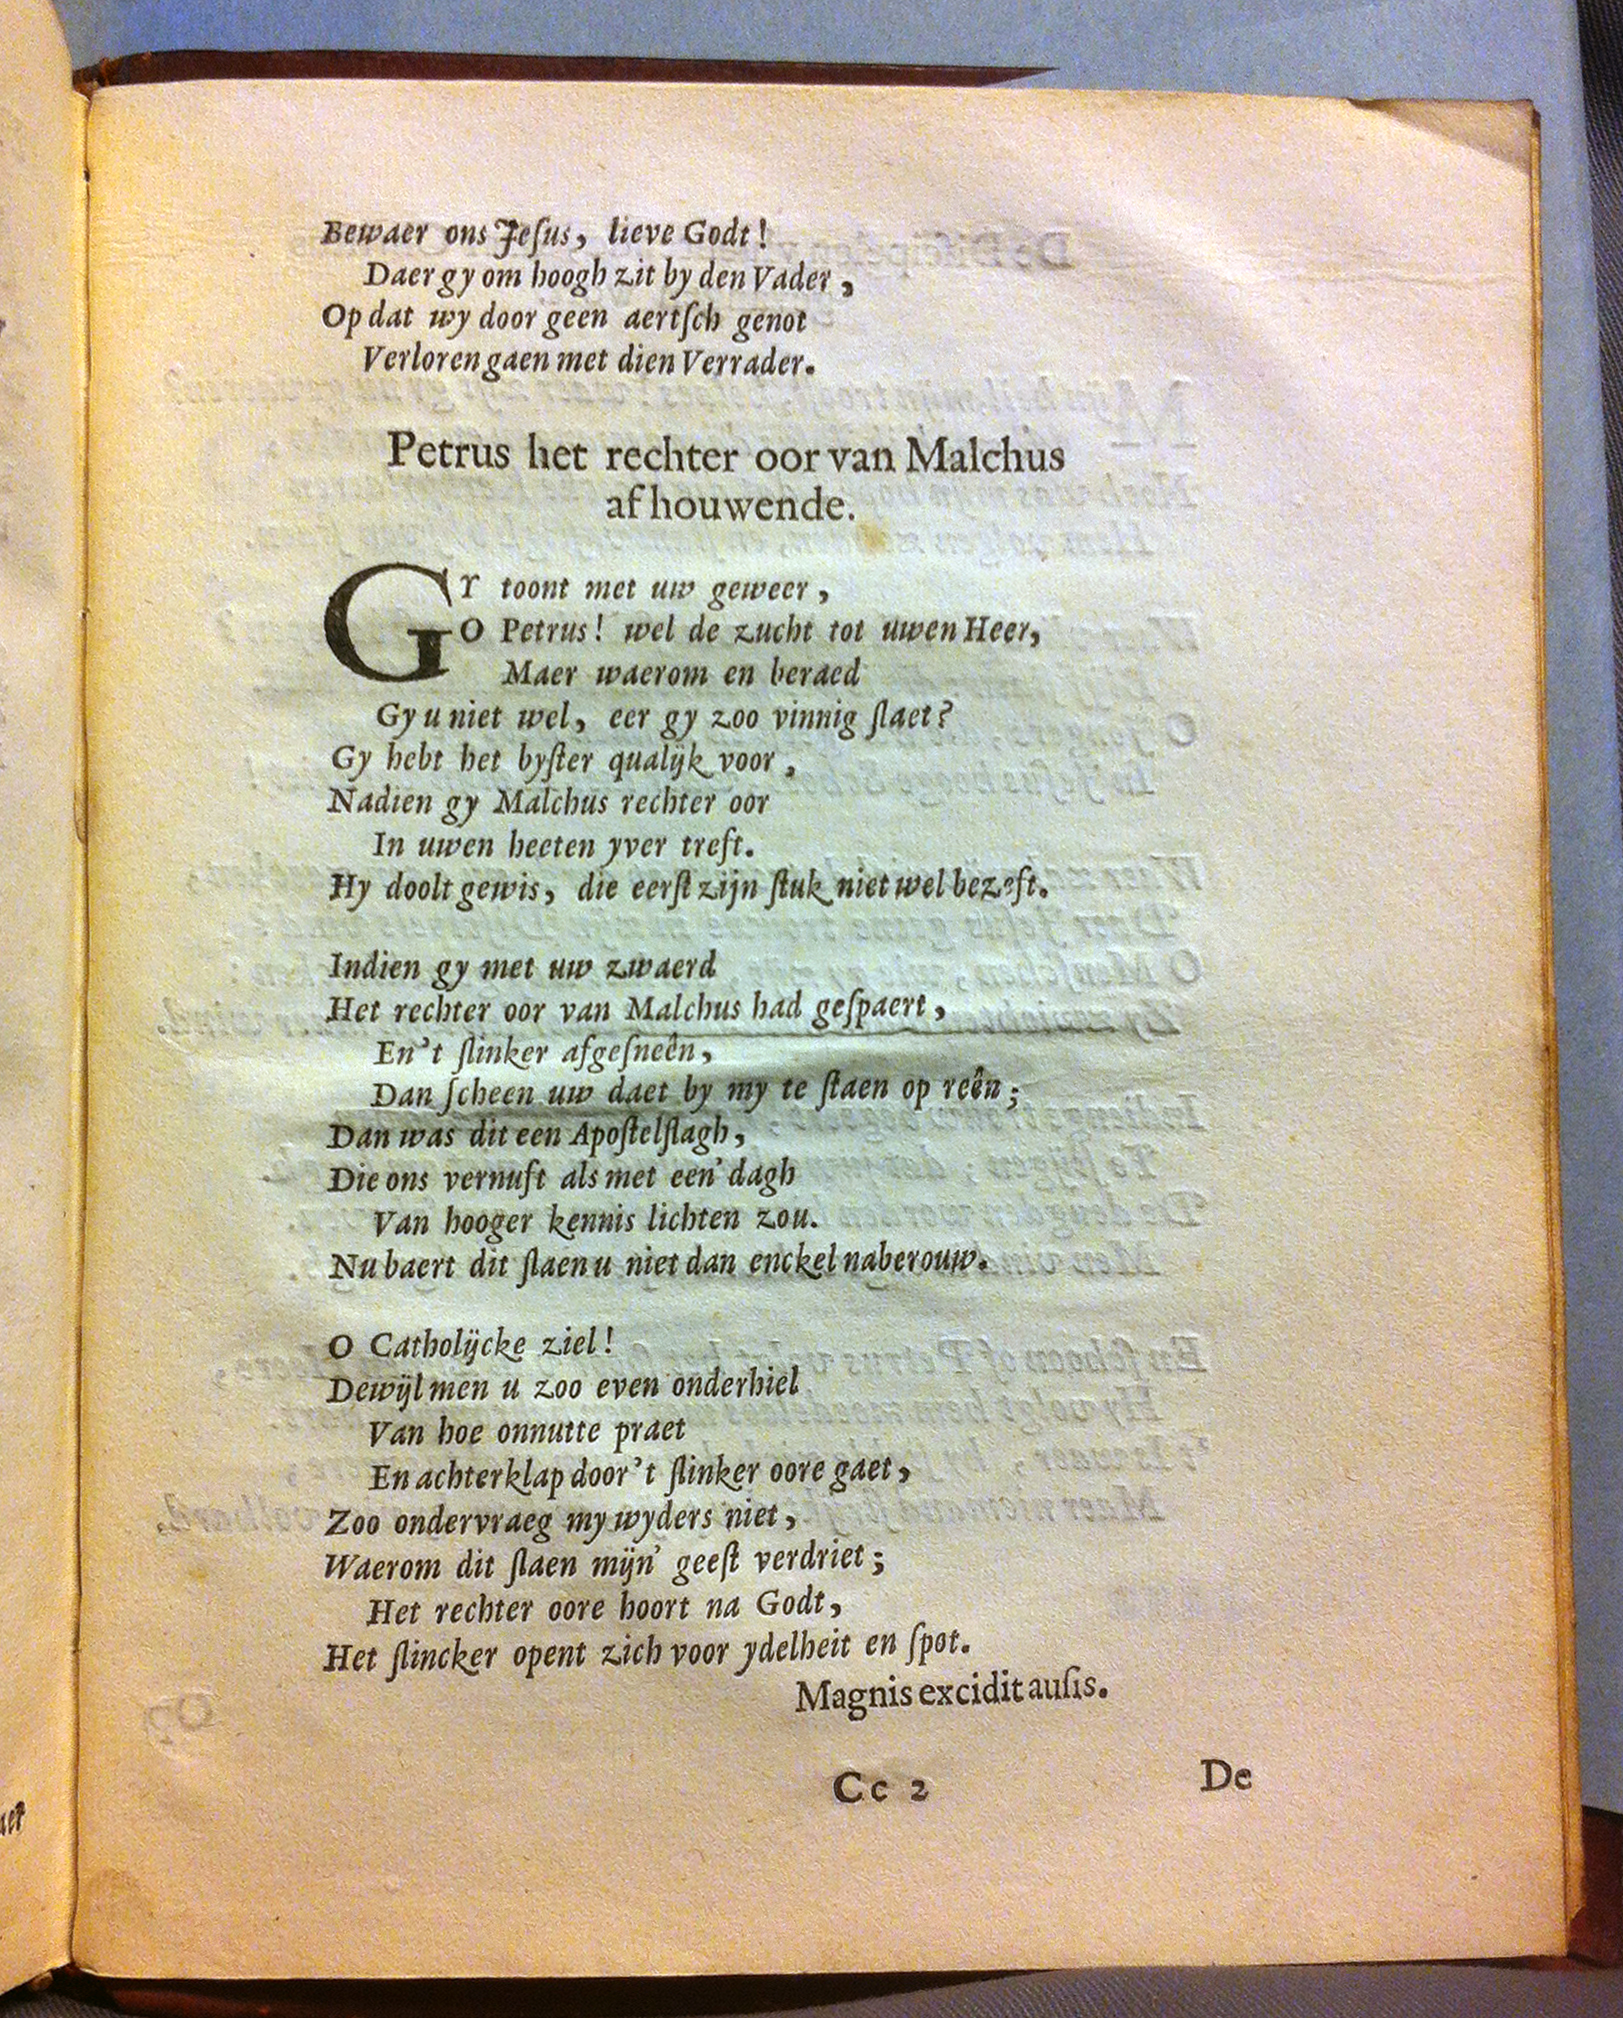 Bewaer ons Jeſus, lieve Godt!
Daer gy om hoogh zit by den Vader,
Op dat wy door geen aertſch genot
Verloren gaen met dien Verrader.
Petrus het rechter oor van Malchus
af houwende.
GY toont met uw geweer,
O Petrus! wel de zucht tot uwen Heer,
Maer waerom en beraed
Gy u niet wel, eer gy zoo vinnig ſlaet?
Gy hebt het byſter qualijk voor,
Nadien gy Malchus rechter oor
In uwen heeten yver treft.
Hy doolt gewis, die eerſt zijn ſtuk niet wel bezeft.
Indien gy met uw zwaerd
Het rechter oor van Malchus had geſpaert,
En 't ſlinker afgeſneên,
Dan ſcheen uw daet by my te ſtaen op reên;
Dan was dit een Apoſtelſlagh,
Die ons vernuft als met een' dagh
Van hooger kennis lichten zou.
Nu baert dit ſlaen u niet dan enckel naberouw.
O Catholijcke ziel!
Dewijl men u zoo even onderhiel
Van hoe onnutte praet
En achterklap door 't ſlinker oore gaet,
Zoo ondervraeg my wyders niet,
Waerom dit ſlaen mijn' geeſt verdriet;
Het rechter oore hoort na Godt,
Het ſlincker opent zich voor ydelheit en ſpot.
Magnis excidit auſis.
Cc 2
De